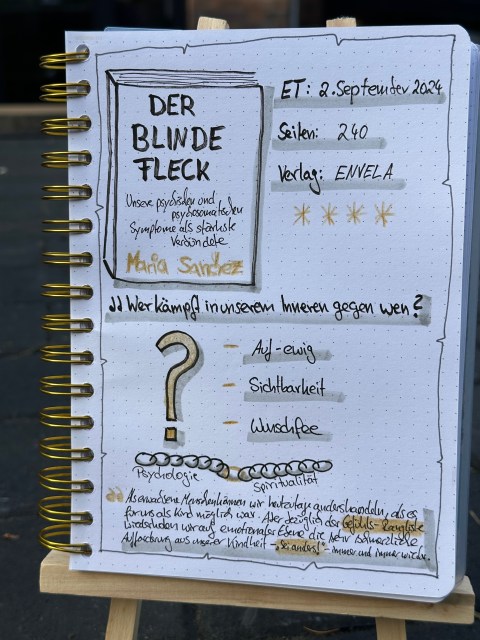 DER
BLINDE
FLECK
Unsere psychischen und
psychosomatischen
Symptome als stärkste
Verbündete
Maria Sanchez
ET: 2. September 2024
Seiten: 240
Verlag: ENVELA
" Wer kämpft in unserem Inneren gegen wen?
- Auf-ewig
- Sichtbarkeit
- Wunschfee
Psychologie
Spiritualität
" Als erwachsene Menschen können wir heutzutage anders handeln, als es
für uns als Kind möglich war. Aber bezüglich der Gefühls-Rangliste
wiederholen wir auf emotionaler Ebene die sehr schmerzliche
Aufforderung aus unserer Kindheit - "Sei anders!" - immer und immer wieder.